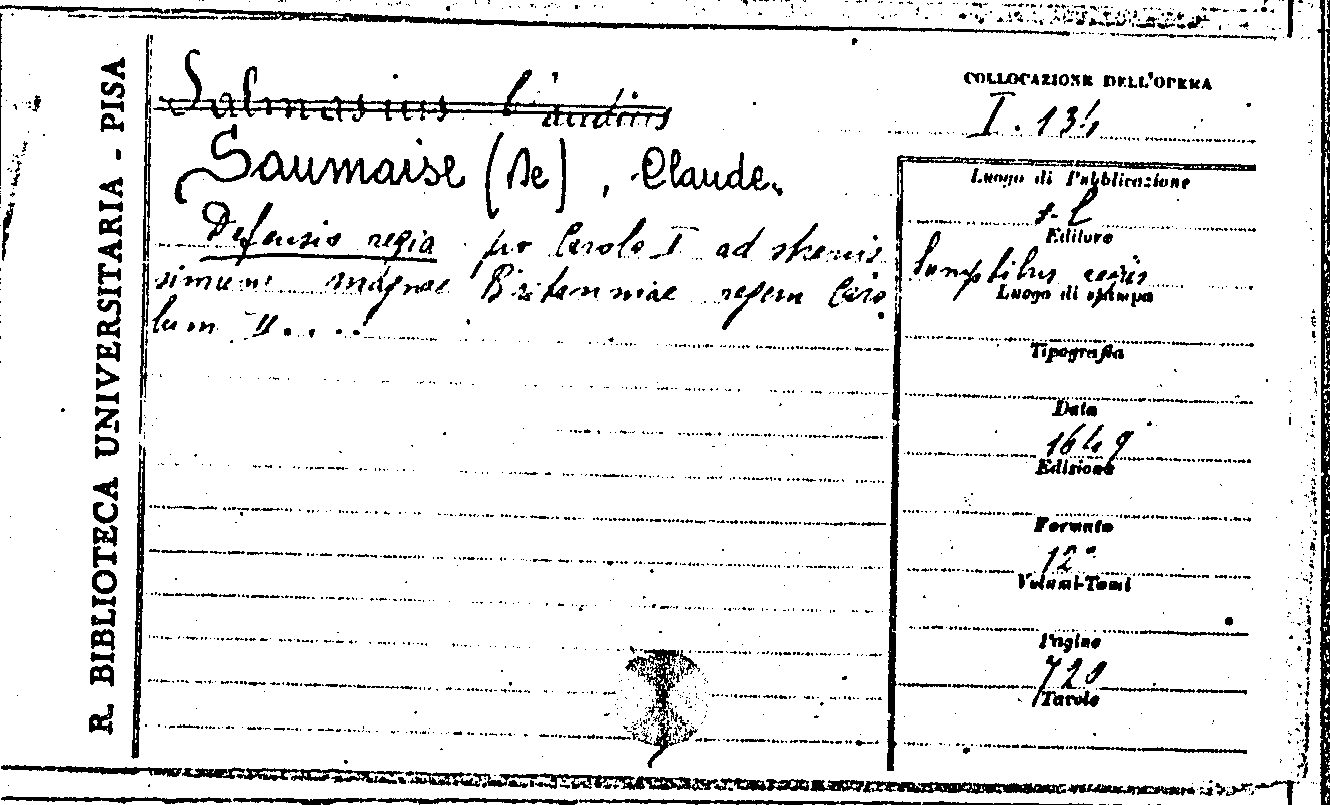 R. BIBLIOTECA UNIVERSITARIA - PISA
Salmasius Claudius
Saumaise (De), Claude.
Defensio regia pro Carolo I ad sereni
simum magnae Britanniae regem Caro
lum II....
COLLOCAZIONE DELL'OPERA
I. 134
Luogo di Pubblicazione
s. l
Editore
Sumptibus regiis
Luogo di stampa
Tipografia
Data
1649
Edizione
Formato
12°
Volumi-Tomi
Pagine
720
Tavole